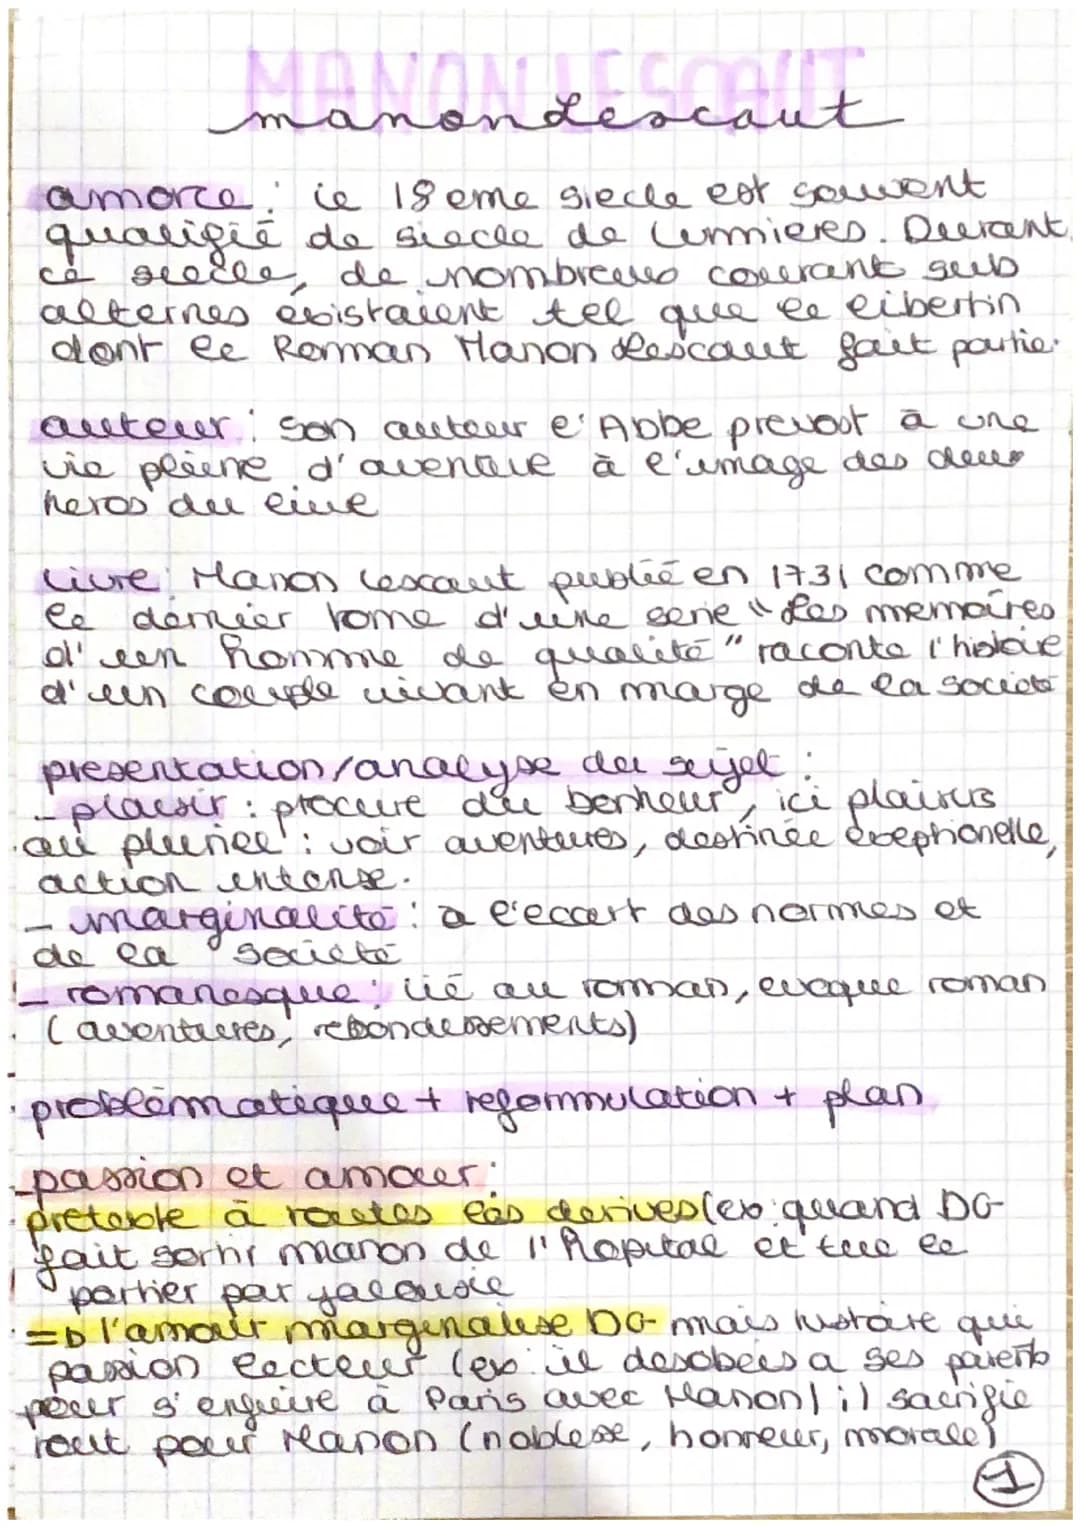 MANON LESCAUT
manon Lescaut
amorce : le 18 eme siecle est souvent
qualifié de siecle de lumieres. Durant
ce siecle, de nombreux courant sub
alternes existaient tel que le libertin
dont le Roman Manon Lescaut fait partie.
auteur : son auteur l'Abbe prevost à une
vie pleine d'aventure à l'image des deux
heros du livre
livre : Manon Lescaut publié en 1731 comme
le dernier tome d'une serie "Les memoires
d'un homme de qualité" raconte l'histoire
d'un couple vivant en marge de la société
presentation/analyse du sujet :
- plaisir : procure du bonheur, ici plaisirs
au pluriel : voir aventures, destinée exeptionelle,
action intense.
- marginalité : a l'ecart des normes et
de la société
- romanesque : lié au roman, evoque roman
(aventures, rebondissements)
problématique + reformulation + plan
-passion et amour :
pretexte à toutes les derives (ex: quand DG
fait sortir manon de l'hopital et tue le
portier par jalousie
=D l'amour marginalise DG mais histoire qui
passion lecteur (ex: il desobeis a ses parents
pour s'enfuire à Paris avec Manon / il sacrifie
tout pour Manon (noblesse, honneur, morale)
1